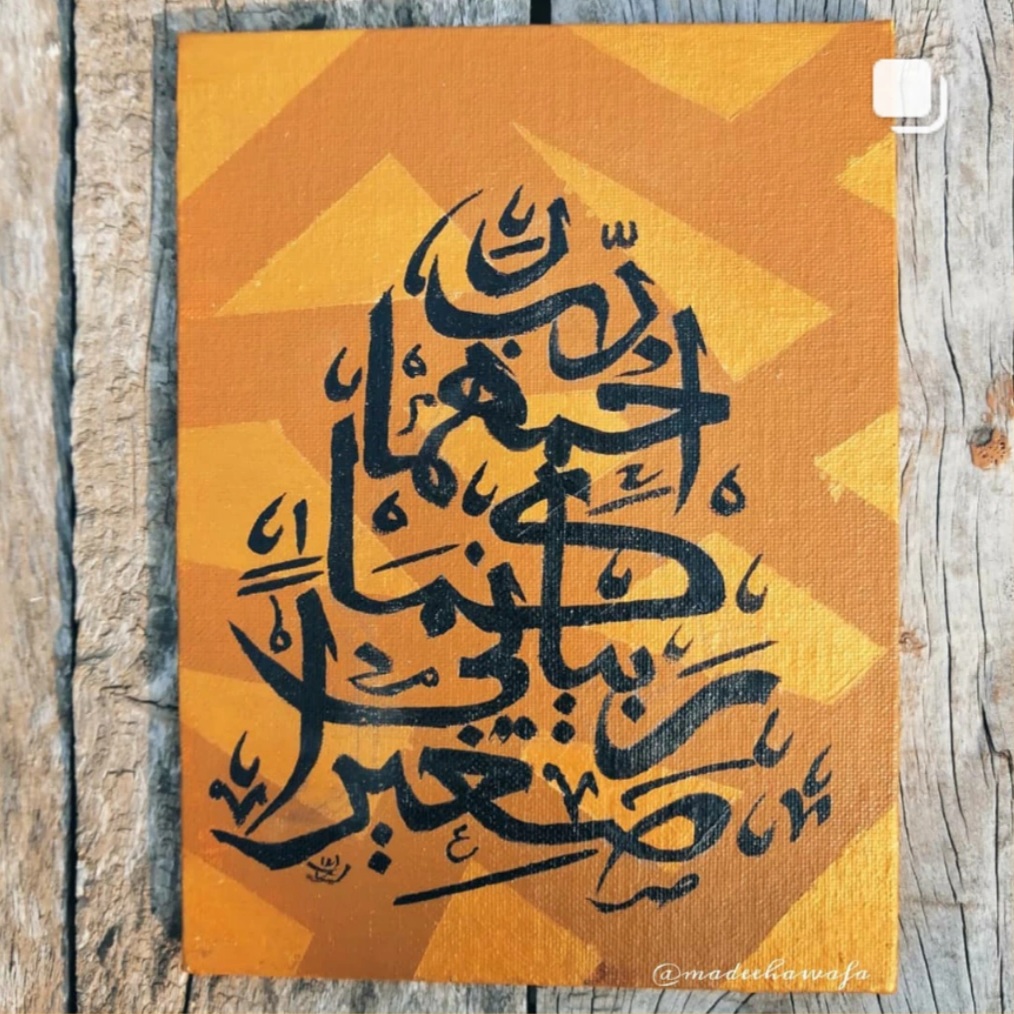 رب
ارحمهما
كما
ربياني
صغيرا
@madeehawafa